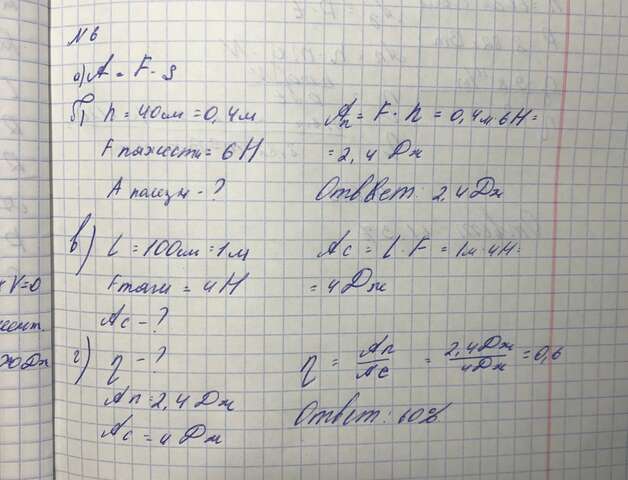 №6
а) A = F · s
б) h = 40см = 0,4м
Fтяжести = 6H
A полезн - ?
Aп = F · h = 0,4м 6H =
= 2,4 Дж
Ответ: 2,4Дж
в) l = 100см = 1м
Fтяги = 4H
Aс - ?
Aс = l · F = 1м · 4H =
= 4Дж
г) η - ?
Aп = 2,4 Дж
Aс = 4 Дж
η = Aп/Aс = 2,4Дж/4Дж = 0,6
Ответ: 60%
V=0
Дж